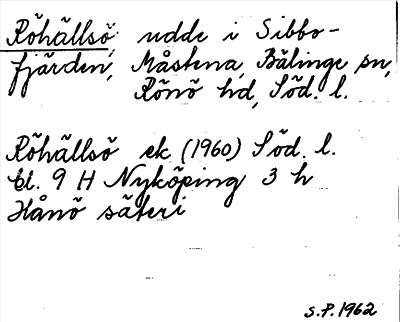 Röhällsö, udde i Sibbo-
fjärden, Måstena, Bälinge sn,
Rönö hd, Söd. l.
Röhällsö ek (1960) Söd. l.
bl. 9 H Nyköping 3 h
Hånö säteri
S.P. 1962